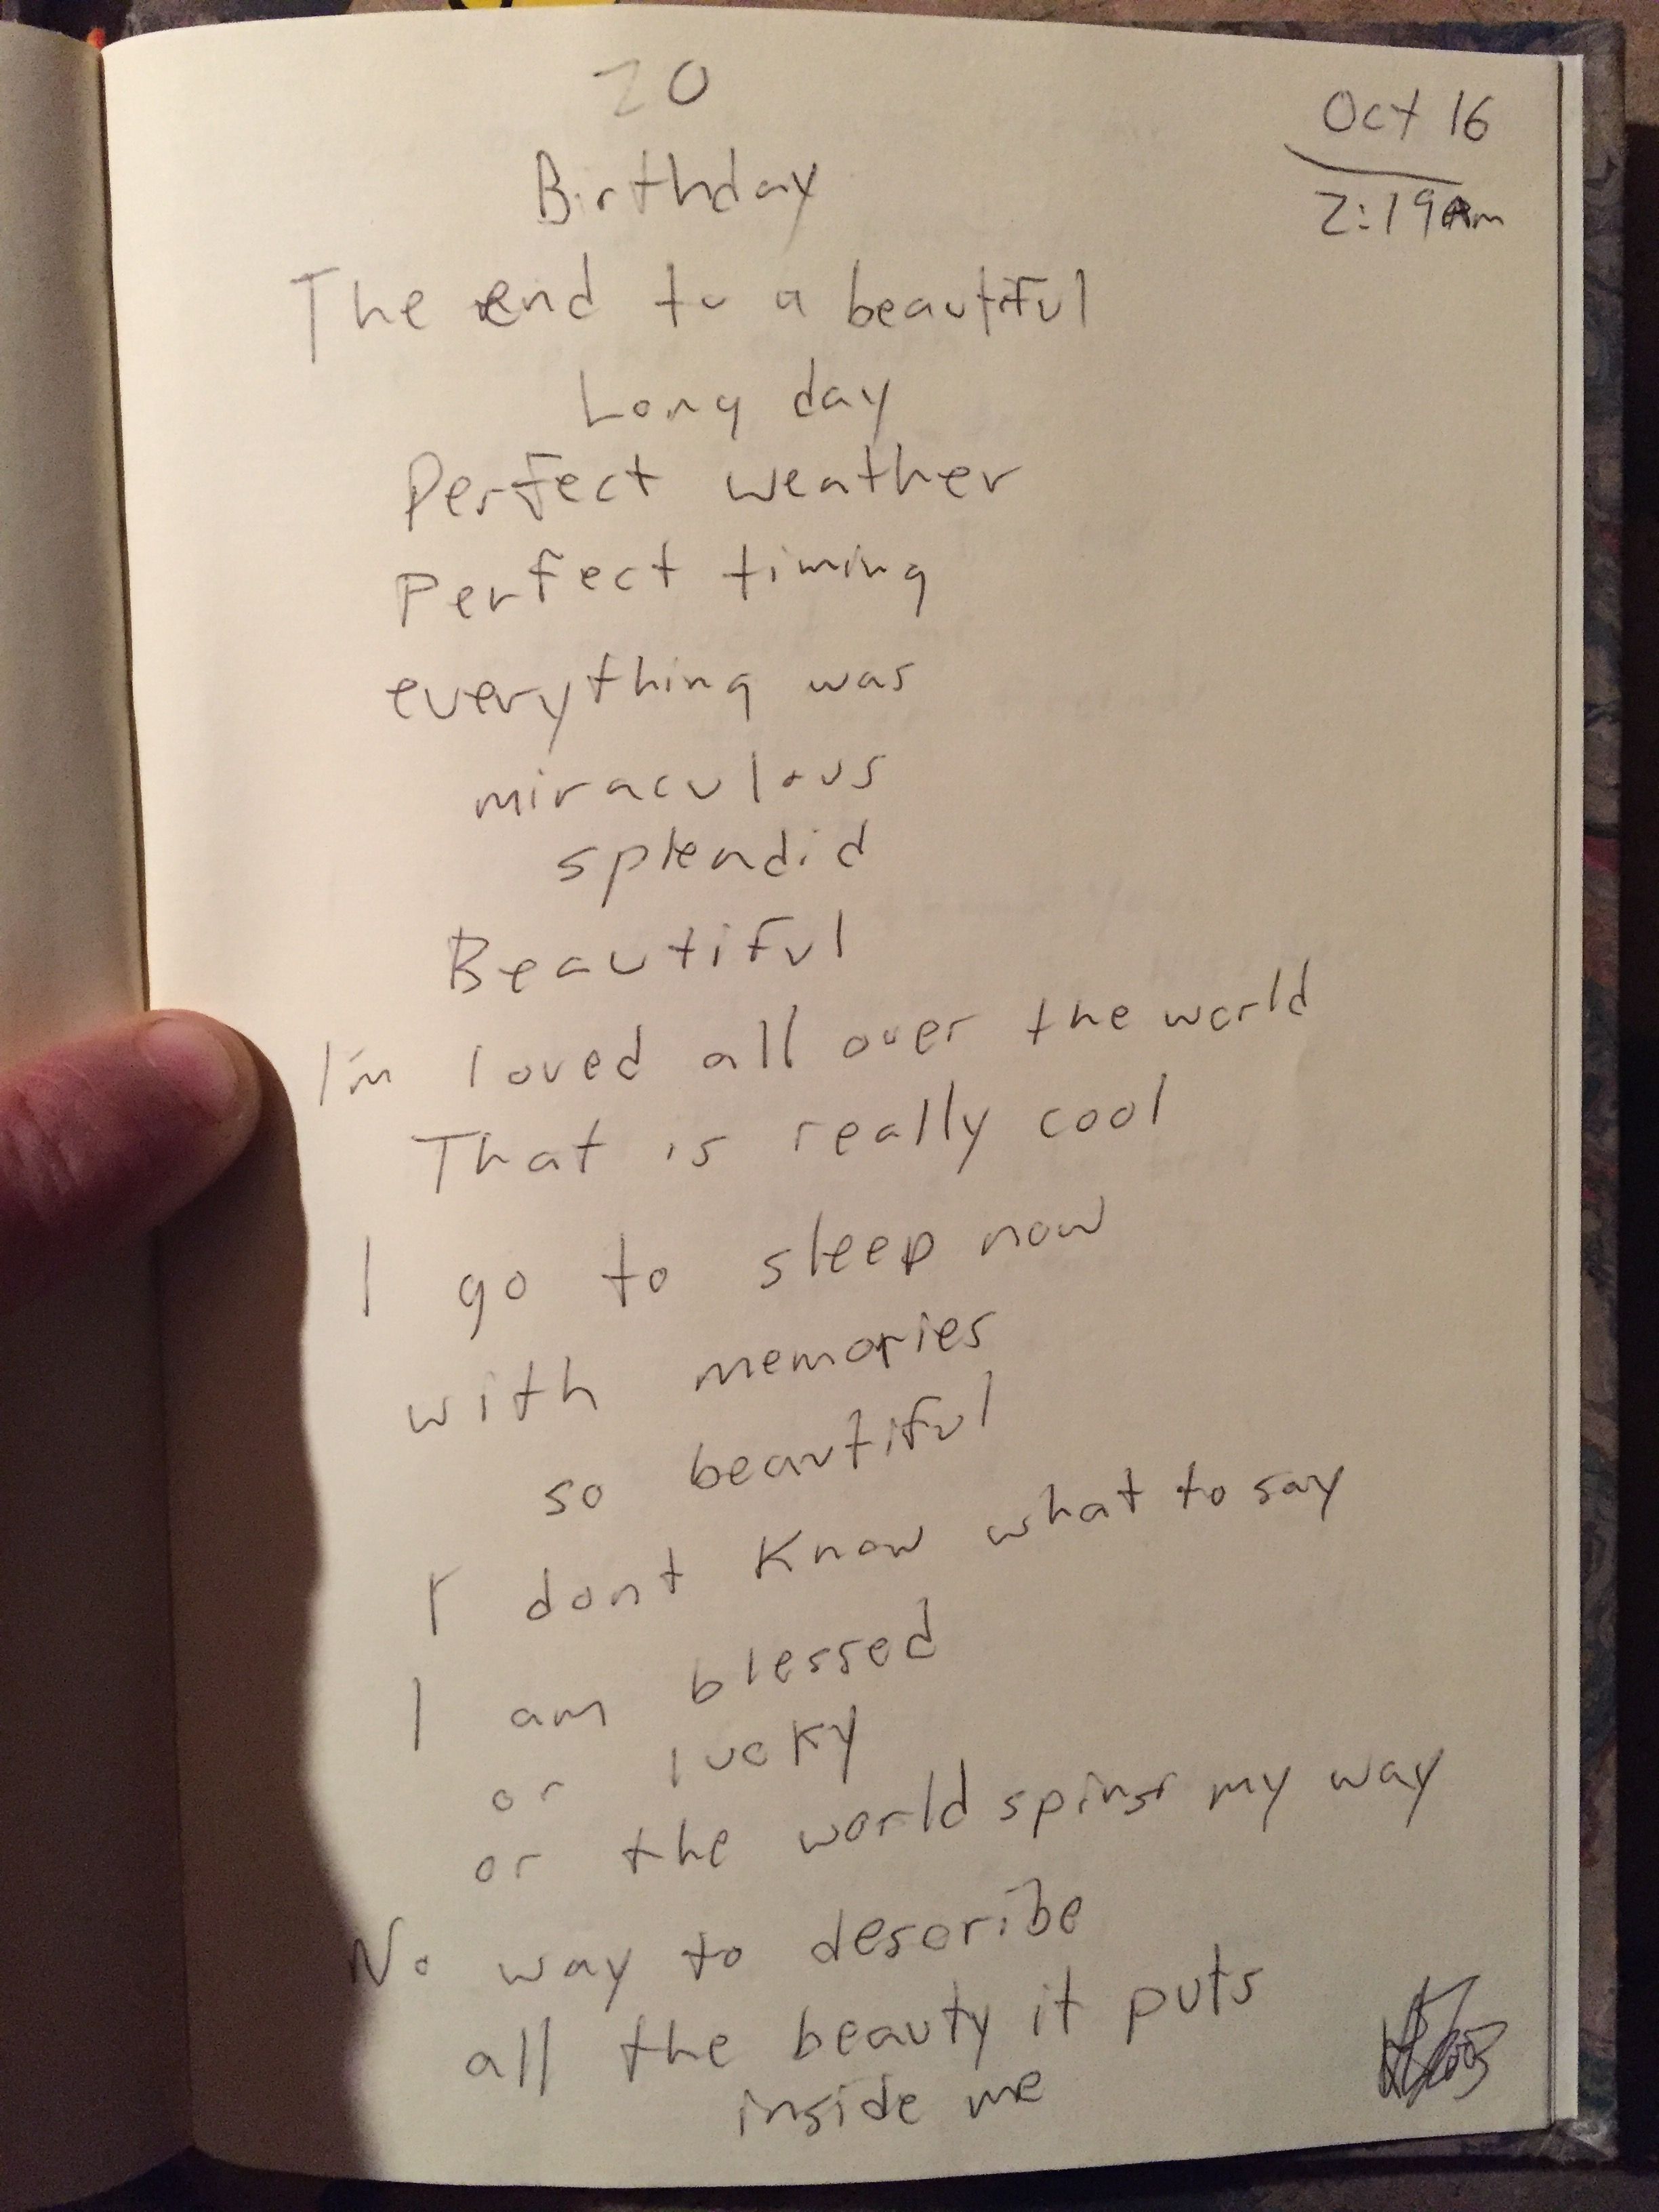 20
Oct 16
Birthday
2:19Am
The end to a beautiful
Long day
Perfect weather
Perfect timing
everything was
miraculous
splendid
Beautiful
I'm loved all over the world
That is really cool
I go to sleep now
with memories
so beautiful
I dont know what to say
I am blessed
or lucky
or the world spins my way
No way to describe
all the beauty it puts
inside me